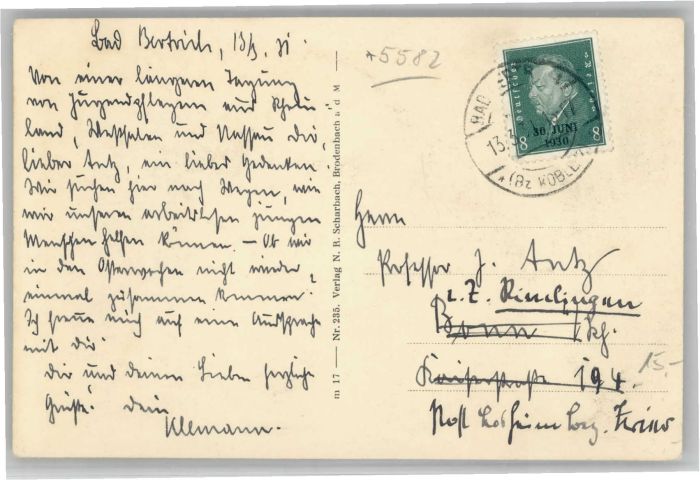 Bad Bertrich, 13/3. 31.
Von einer längeren Tagung
von Jugendpflegern aus Rhein-
land, Westfalen und Nassau dir,
lieber Antz, ein lieber Gedenken.
Wir suchen hier nach Wegen, wie
wir unseren arbeitslosen jungen
Menschen helfen können. – Ob wir
in den Osterwochen nicht wieder
einmal zusammen kommen?
Ich freue mich auf eine Aussprache
mit dir.
Dir und deinen Lieben herzliche
Grüße! Dein
Klemann.
m 17 — Nr. 235. Verlag N. B. Scharbach, Brodenbach a d M —
*5582
Deutsches Reich
30. JUNI
1930
8 8
BAD BERTRICH
13.3.
*(Bz KOBLENZ)
Herrn
Professor J. Antz
z. Z. Rimlingen
Bonn
Kaiserstraße 194.
Post Losheim Bez. Trier
15-